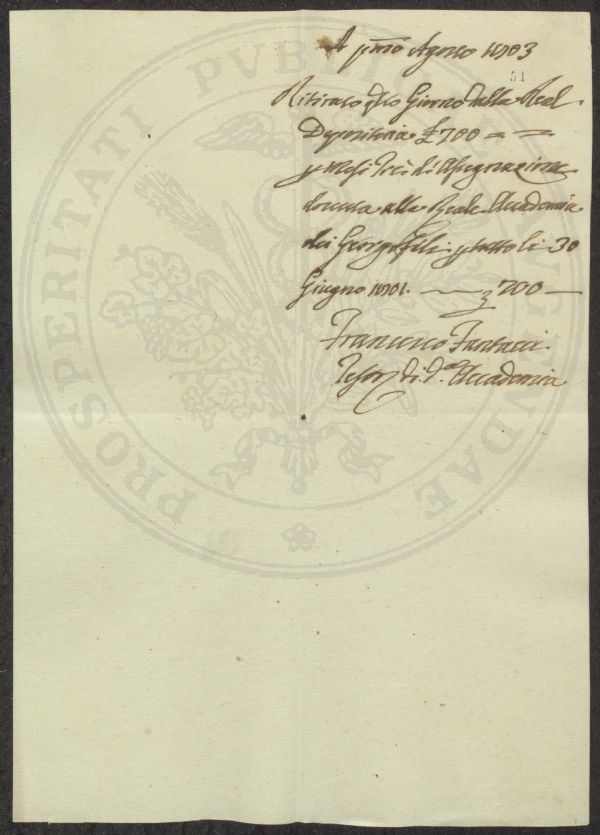 A pmo Agosto 1803
51
Ritirato qto Giorno dalla Real
Depositeria £700 = =
p Mesi Tre di Assegnazione
dovuta alla Reale Accademia
dei Georgofili p tutto li 30
Giugno 1801. — £ 700 —
Francesco Fantacci
Tesor di da Accademia
PROSPERITATI PVBLICAE AVGENDAE